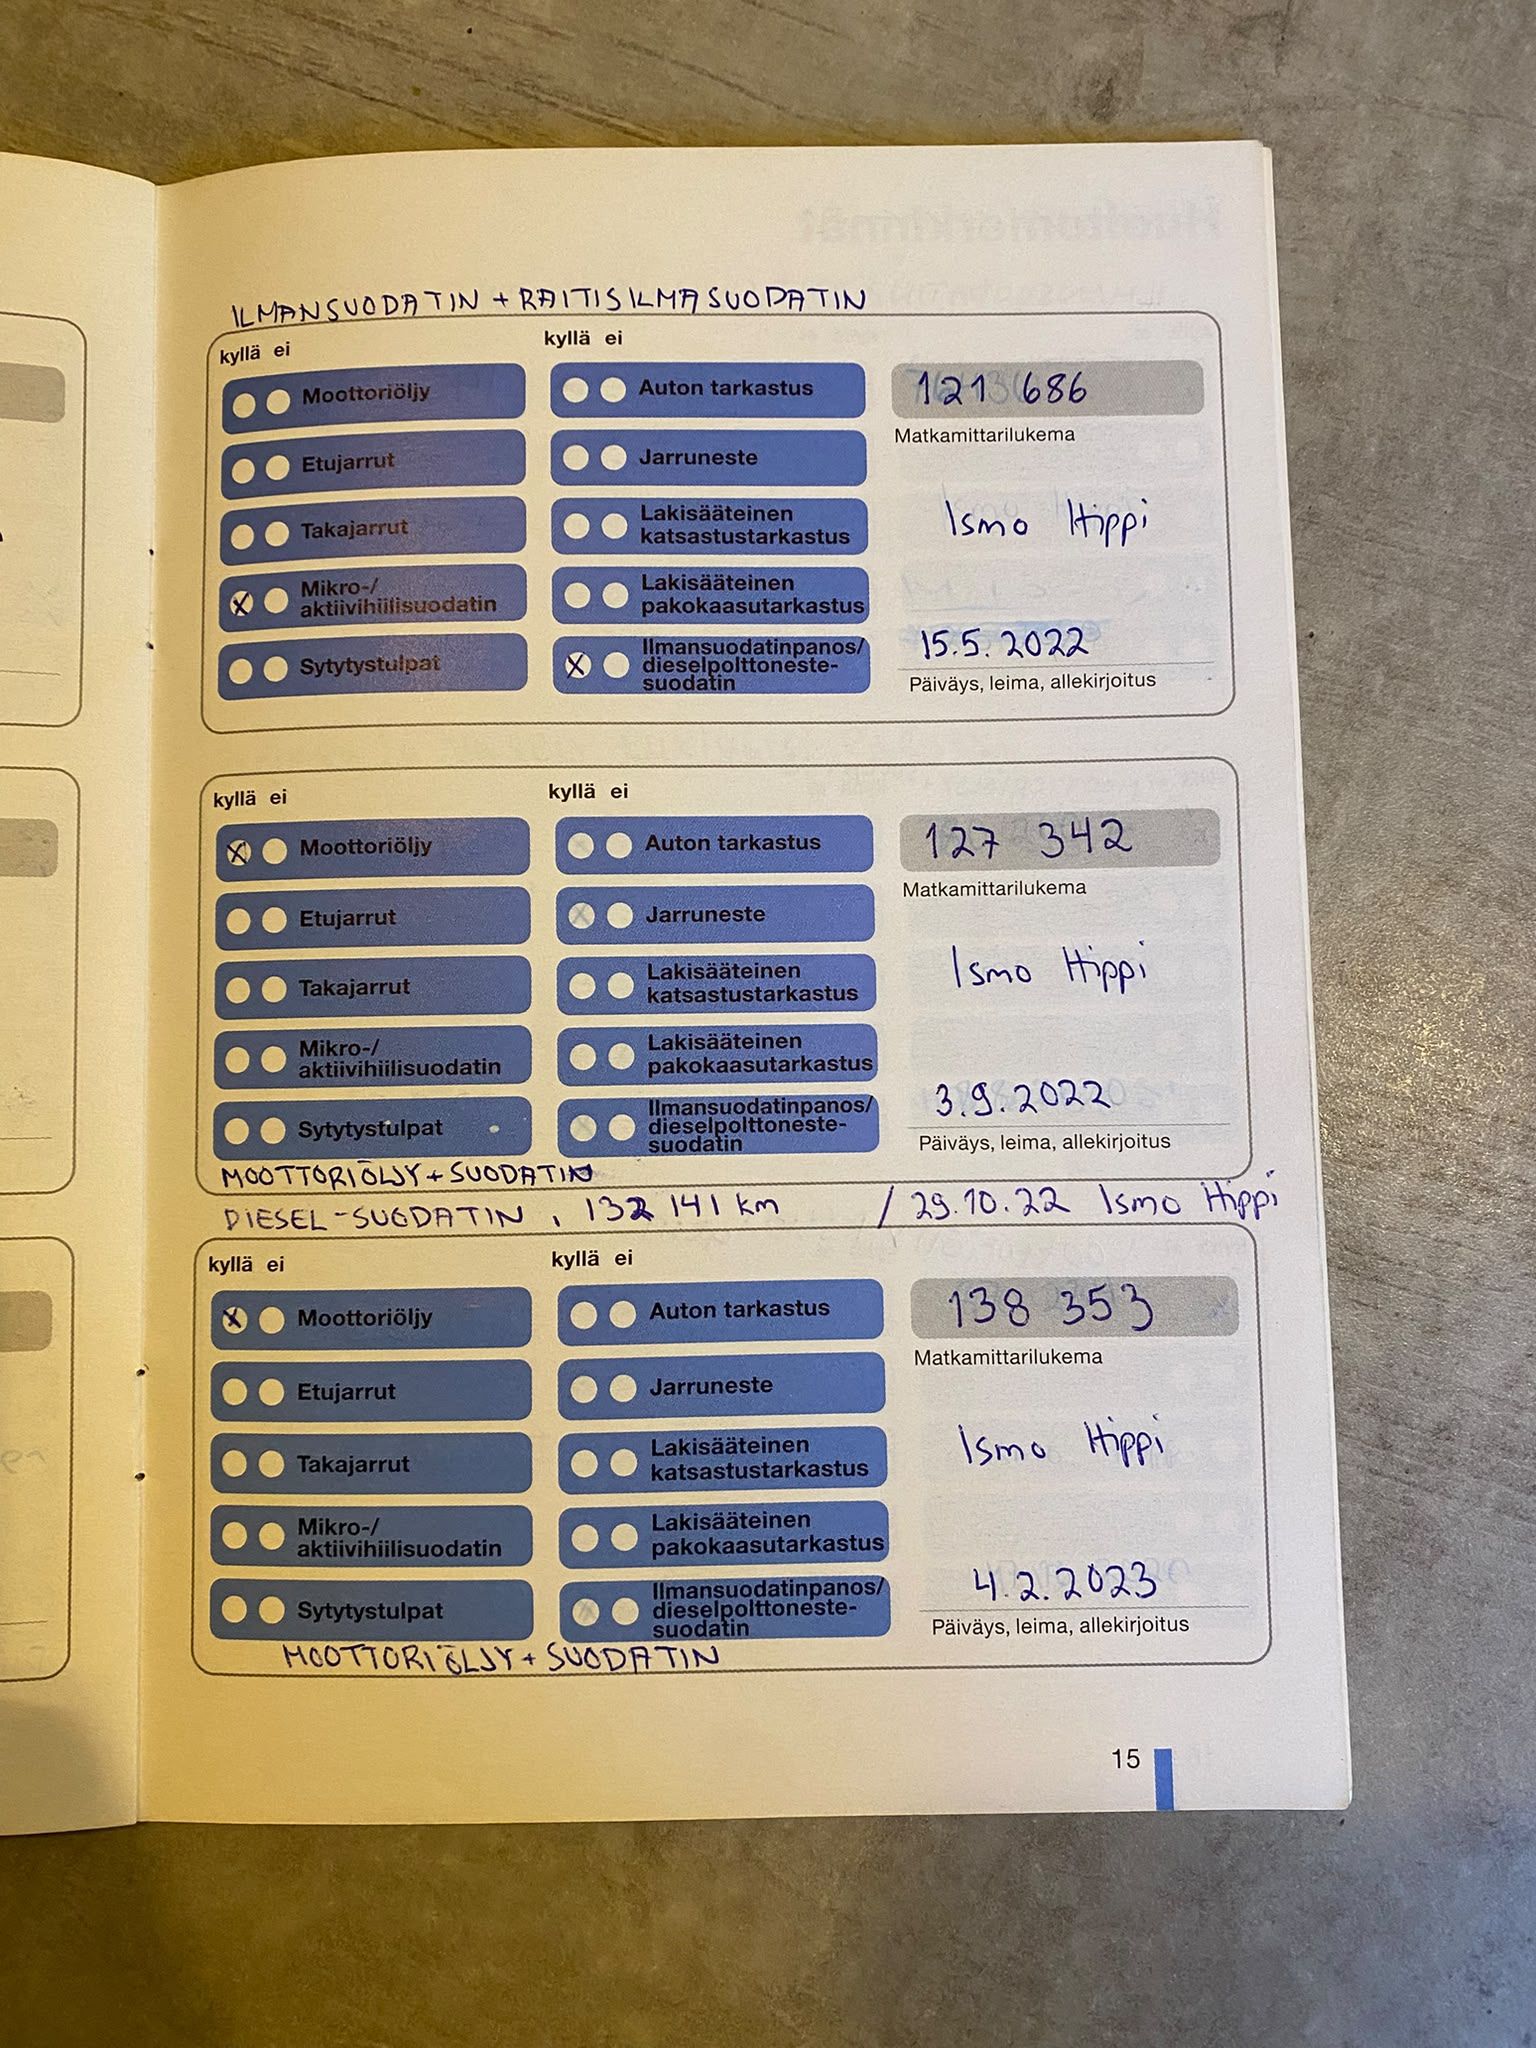 ILMANSUODATIN + RAITISILMASUODATIN
kyllä ei
kyllä ei
Moottoriöljy
Auton tarkastus
121 686
Matkamittarilukema
Etujarrut
Jarruneste
Takajarrut
Lakisääteinen
katsastustarkastus
Ismo Hippi
X Mikro-/
aktiivihiilisuodatin
Lakisääteinen
pakokaasutarkastus
Sytytystulpat
X Ilmansuodatinpanos/
dieselpolttoneste-
suodatin
15.5.2022
Päiväys, leima, allekirjoitus
kyllä ei
kyllä ei
X Moottoriöljy
Auton tarkastus
127 342
Matkamittarilukema
Etujarrut
Jarruneste
Takajarrut
Lakisääteinen
katsastustarkastus
Ismo Hippi
Mikro-/
aktiivihiilisuodatin
Lakisääteinen
pakokaasutarkastus
Sytytystulpat
Ilmansuodatinpanos/
dieselpolttoneste-
suodatin
3.9.2022
Päiväys, leima, allekirjoitus
MOOTTORIÖLJY + SUODATIN
DIESEL-SUODATIN, 132 141 km / 29.10.22 Ismo Hippi
kyllä ei
kyllä ei
X Moottoriöljy
Auton tarkastus
138 353
Matkamittarilukema
Etujarrut
Jarruneste
Takajarrut
Lakisääteinen
katsastustarkastus
Ismo Hippi
Mikro-/
aktiivihiilisuodatin
Lakisääteinen
pakokaasutarkastus
Sytytystulpat
Ilmansuodatinpanos/
dieselpolttoneste-
suodatin
4.2.2023
Päiväys, leima, allekirjoitus
MOOTTORIÖLJY + SUODATIN
15